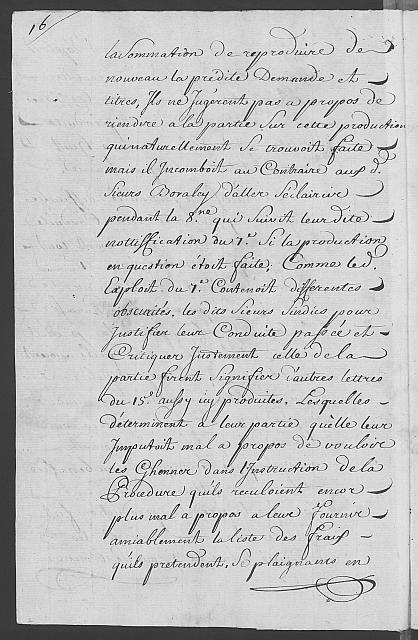 16
la Sommation de reproduire de
nouveau la prédite Demande et
titres, Ils ne Jugérent pas a propos de
riendire a la partie Sur cette production
qui naturellement Se trouvoit faite
mais il Incomboit au Contraire aux d.
Sieurs d'aller Séclaircir
pendant la 8.ne qui Suivit leur dite
nottiffication du 7.e Si la production
en question étoit faite. Comme led.
Exploit du 7.e Contenoit differentes
obscurités, les dits Sieurs Sindics pour
Justifier leur Conduite passée et
Critiquer Justement celle de la
partie firent Signifier d'autres lettres
du 15.e aussy icy produites. Lesquelles
déterminent a leur partie quélle leur
Imputoit mal a propos de vouloir
les Ghenner dans l'Instruction de la
Procedure qu'ils reculoient encor
plus mal a propos a leur fournir
amiablement la liste des fraix
qu'ils pretendent. Se plaignants en